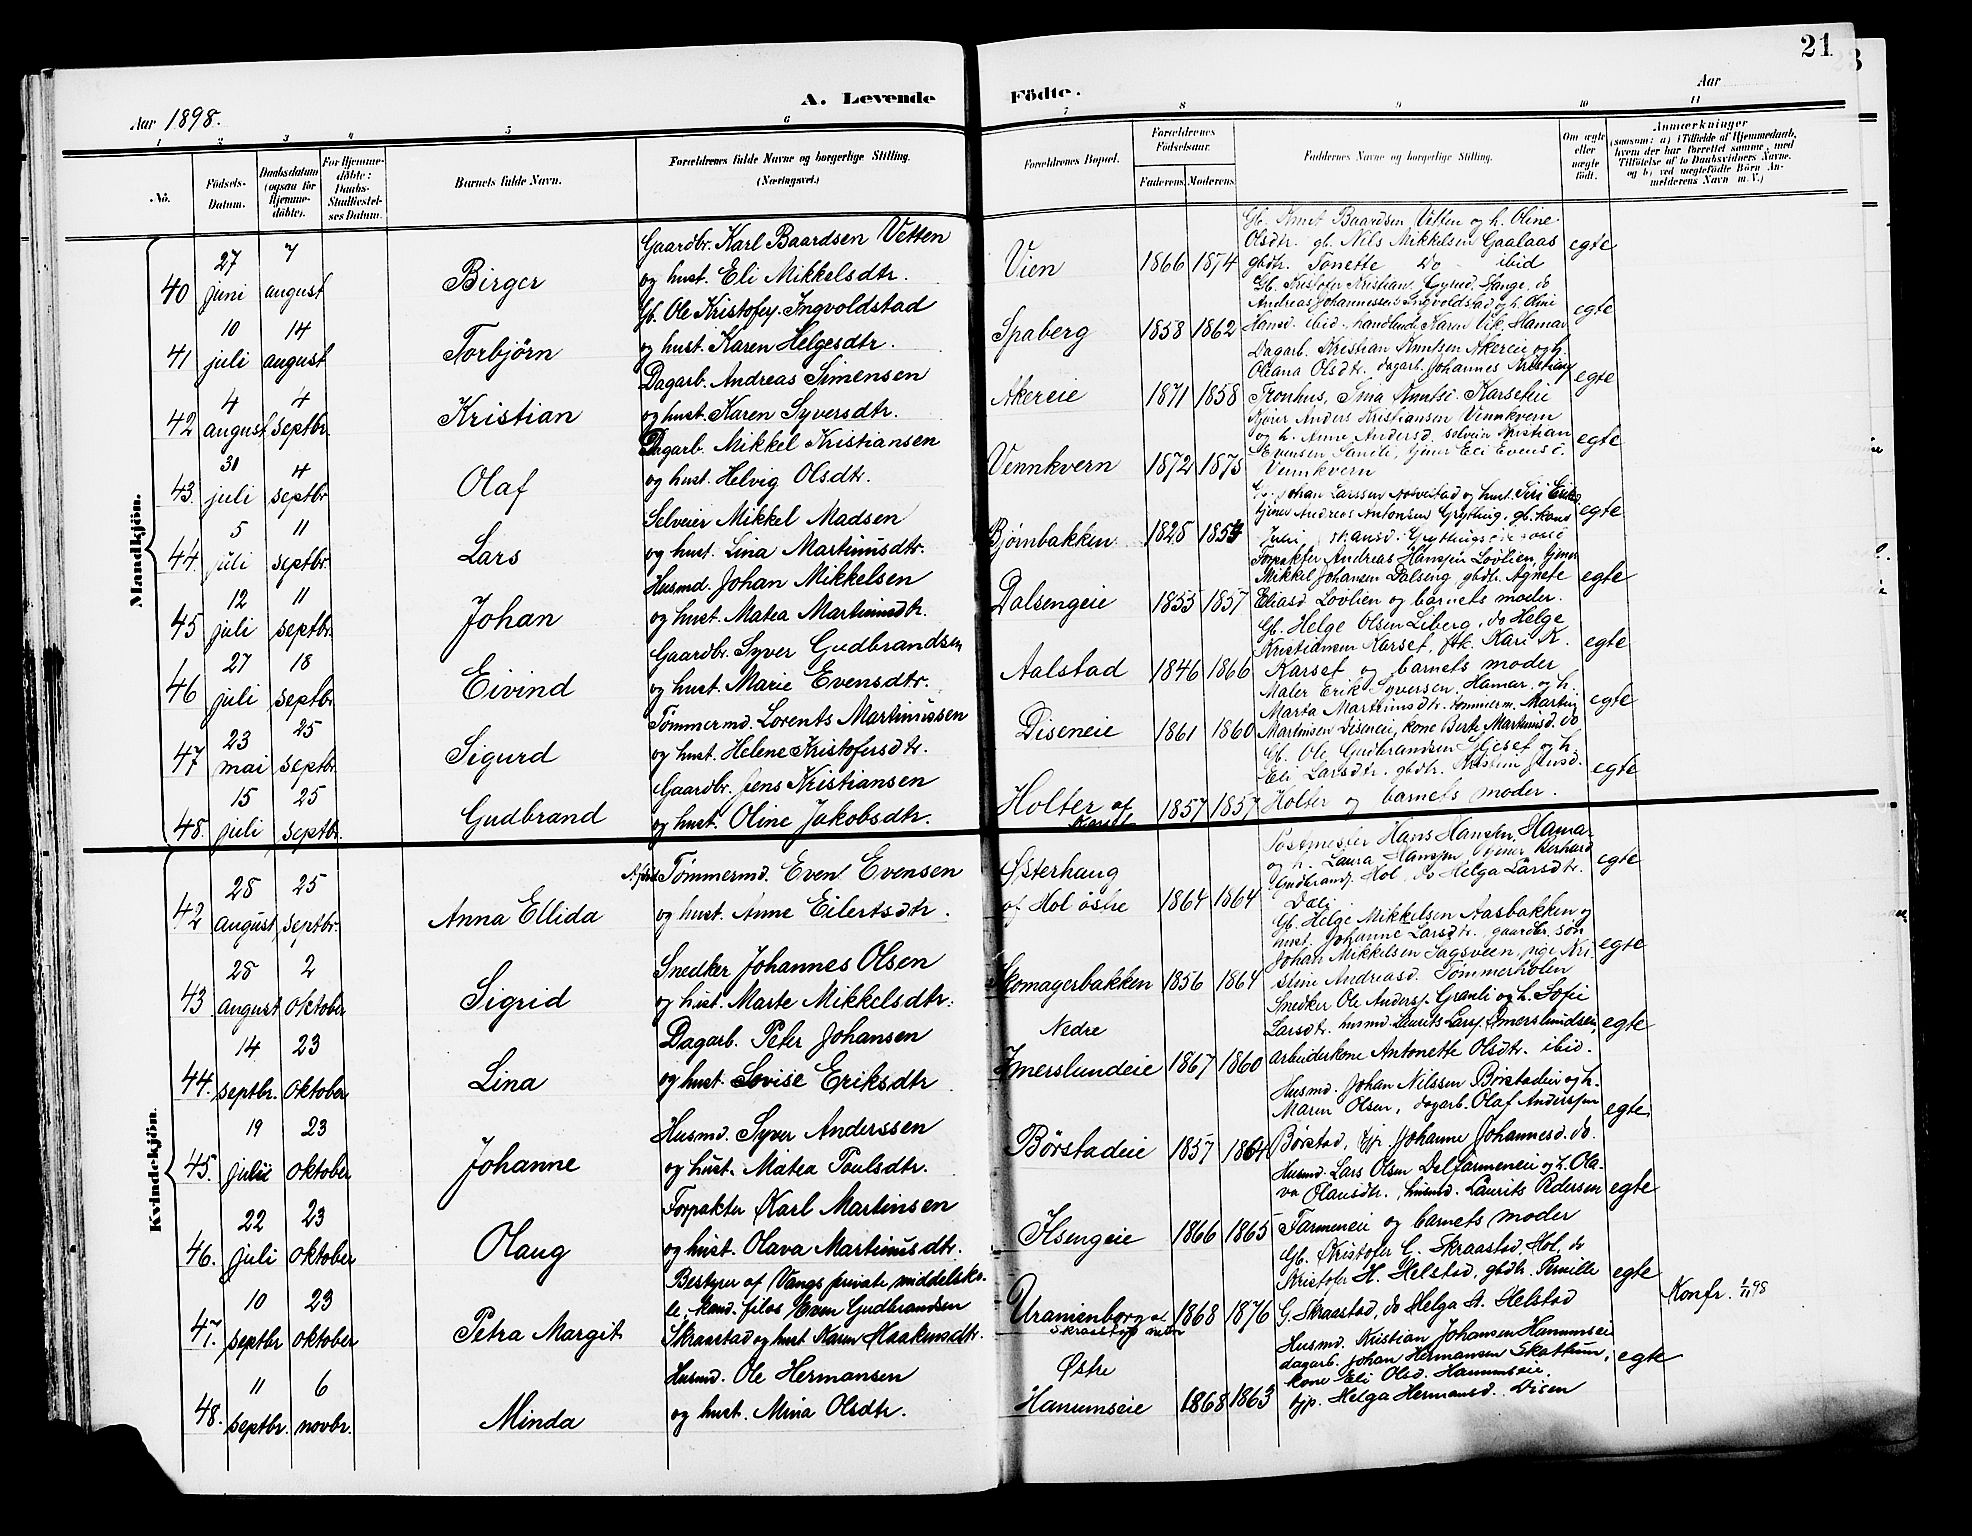 21
A. Levende Födte.
Aar 1898.
Aar
1 2 3 4 5 6 7 8 9 10 11
Nô.
Födsels-Datum.
Daabsdatum (ogsaa for Hjemmedöbte).
For Hjemmedöbte: Daabs-Stadfæstelses Datum.
Barnets fulde Navn.
Forældrenes fulde Navne og borgerlige Stilling. (Næringsvei.)
Forældrenes Bopæl.
Forældrenes Födselsaar.
Faderens Moderens
Faddernes Navne og borgerlige Stilling.
Om ægte eller uægte födt.
Anmærkninger
(saasom: a) i Tilfælde af Hjemmedaab, hvem der har forrettet samme, med Tilföielse af to Daabsvidners Navne, og b) ved uægtefödte Börn Anmelderens Navn m. V.)
Mandkjön.
40 27 juni 7 august Birger Gaardbr. Karl Baardsen Vetten og hust. Eli Mikkelsdtr. Vien 1866 1874 Gb. Knut Baardsen Vetten og h. Oline Olsdtr. gb. Nils Mikkelsen Gaalaas gbdtr. Tonette do ibid egte
41 10 juli 14 august Torbjörn Gb. Ole Kristofers. Ingvoldstad og hust. Karen Helgesdtr. Spaberg 1858 1862 Gb. Kristofer Kristians. Stange, do Andreas Johannessen Ingvoldstad og h. Olini Hansd. ibid. handlende Karen Vik, Hamar egte
42 4 august 4 septbr. Kristian Dagarb. Andreas Simensen og hust. Karen Syversdtr. Akereie 1871 1858 Dagarb. Kristian Knutsen Akereie og h. Oleana Olsdtr. dagarb. Johannes Kristians. Tronhus, Karseteie egte
43. 31 juli 4 septbr Olaf Dagarb. Mikkel Kristiansen og hust. Helvig Olsdtr. Vennkvern 1872 1875 Kjörer Anders Kristiansen Vennkvern og h. Anne Andersd. selveier Kristian Evensen Vennkvern egte
44. 5 juli 11 septbr. Lars Selveier Mikkel Madsen og hust. Lina Martinusdtr. Bjørnbakken 1828 1854 Gb. Johan Larssen og hust. Siri tjener Andreas Antonsen Grytting, gb. kone egte
45 12 juli 11 septbr. Johan Husmd. Johan Mikkelsen og hust. Matea Martinusdtr. Dalsengeie 1855 1857 Forpakter Andreas Hanssen Lovlien, tjener Mikkel Johansen Dalseng, gbdtr. Agnete Eliasd Lovlien og barnets moder. egte
46 27 juli 18 septbr. Eivind Gaardbr. Syver Gudbrandsen og hust. Marie Evensdtr. Aalstad 1846 1866 Gb. Helge Olsen Liberg, do Helge Kristiansen Karset, Kari K. Karset og barnets moder egte
47 23 mai 25 septbr. Sigurd Tømmermd. Lorents Martinussen og hust. Helene Kristofersdtr. Diseneie 1861 1860 Maler Erik Syversen, Hamar, og h. Marta Martinusdtr. tömmerm. Martin Martinsen Diseneie, kone Berte Martinusd. do egte
48. 15 juli 25 septbr. Gudbrand Gaardbr. Jens Kristiansen og hust. Oline Jakobsdtr. Holter af 1857 1857 Gb. Ole Gudbrandsen og h. Eli Larsdtr. gbdtr. Kristine Jensd. Holter og barnets moder. egte
Kvindekjön.
42 28 august 25 septbr. Anna Ellida Tømmermd. Even Evensen og hust. Anne Eilertsdtr. Østerhaug af Hol östre 1864 1864 Postmester Hans Hansen, Hamar og h. Laura Hanssen, tjener Bernhard Gudbrands. Hol, do Helga Larsdtr. Dæli egte
43 28 august 2 oktober Sigrid Snedker Johannes Olsen og hust. Marte Mikkelsdtr. Skomagerbakken 1856 1864 Gb. Helge Mikkelsen Aasbakken og hust. Johanne Larsdtr. gaardbr. sön Johan Mikkelsen Sagsveen, pige Kristine Andreasd. Tømmerholen egte
44. 14 septbr. 23 oktober Lina Dagarb. Peter Johansen og hust. Lovise Eriksdtr Nedre Imerslundeie 1867 1860 Snedker Ole Anderss. Granli og h. Sofie Larsdtr. husmd. Laurits Larss. Imerslundseie arbeiderkone Antonette Olsdtr. ibid. egte
45. 19 juli 23 oktober Johanne Husmd. Syver Anderssen og hust. Matea Poulsdtr. Børstadeie 1857 1864 Husmd. Johan Nilssen Børstadeie og h. Maren Olsen, dagarb. Olaf Anderssen Børstad, tjp. Johanne Johannesd. do. egte
46. 22 juli 23 oktober Olaug Forpakter Karl Martinsen og hust. Olava Martinusdtr. Ilsengeie 1866 1865 Husmd. Lars Olsen Dalfarmeneie og h. Olava Olausdtr. husmd. Laurits Pedersen Farmeneie og barnets moder egte
47. 10 septbr 23 oktober Petra Margit Bestyrer af Vangs private middelskole, kand. filos Even Gudbrandsen Skraastad og hust Karen Haakensdtr. Uranienborg af Skraastad nedre 1868 1876 Gb. Kristofer C. Skraastad, Hol, do Kristofer H. Helstad, gbdtr. Pernille G. Skraastad, do Helga A. Helstad egte Konfr. 1/11 98
48. 11 septbr. 6 novbr. Minda Husmd. Ole Hermansen og hust. Mina Olsdtr. Østre Hanumseie 1868 1863 Husmd. Kristian Johansen Hanumseie dagarb. Johan Hermansen Skattum, kone Eli Olsd. Hanumseie. tjp. Helga Hermansd. Disen egte